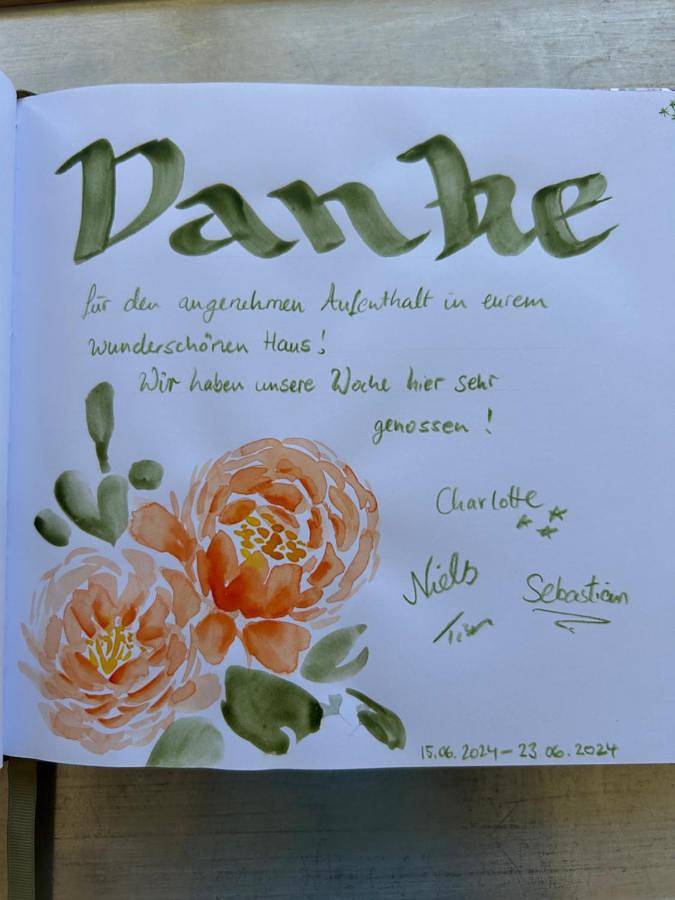 Danke
für den angenehmen Aufenthalt in eurem
wunderschönen Haus!
Wir haben unsere Woche hier sehr
genossen!
Charlotte
Niels
Sebastian
Tim
15.06.2024 – 23.06.2024